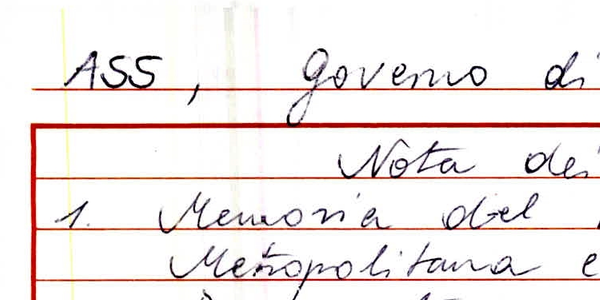 ASS, Governo di
Nota dei
1. Memoria del
Metropolitana e